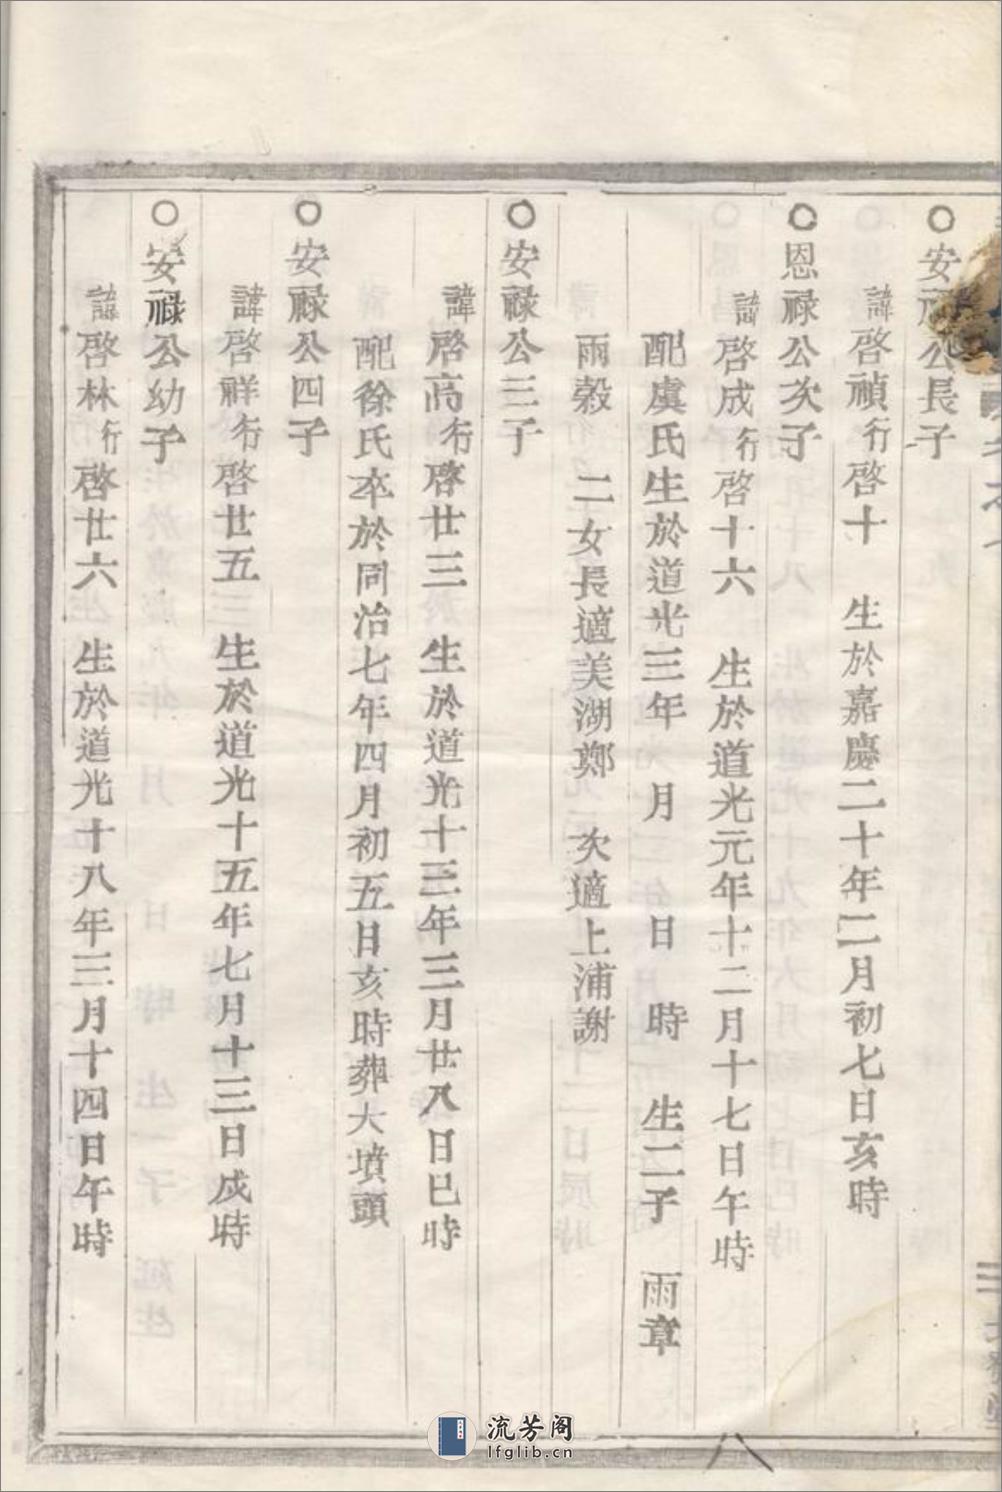 ○安祿公長子
諱啓禎行啓十　生於嘉慶二十年二月初七日亥時
○恩祿公次子
諱啓成行啓十六　生於道光元年十二月十七日午時
配虞氏生於道光三年　月　日　時　生二子　雨章
雨穀　二女長適美湖鄭　次適上浦謝
○安祿公三子
諱啓高行啓廿三　生於道光十三年三月廿八日巳時
配徐氏卒於同治七年四月初五日亥時葬大墳頭
○安祿公四子
諱啓祥行啓廿五　生於道光十五年七月十三日戌時
○安祿公幼子
諱啓林行啓廿六　生於道光十八年三月十四日午時
八
流芳阁
lfglib.cn